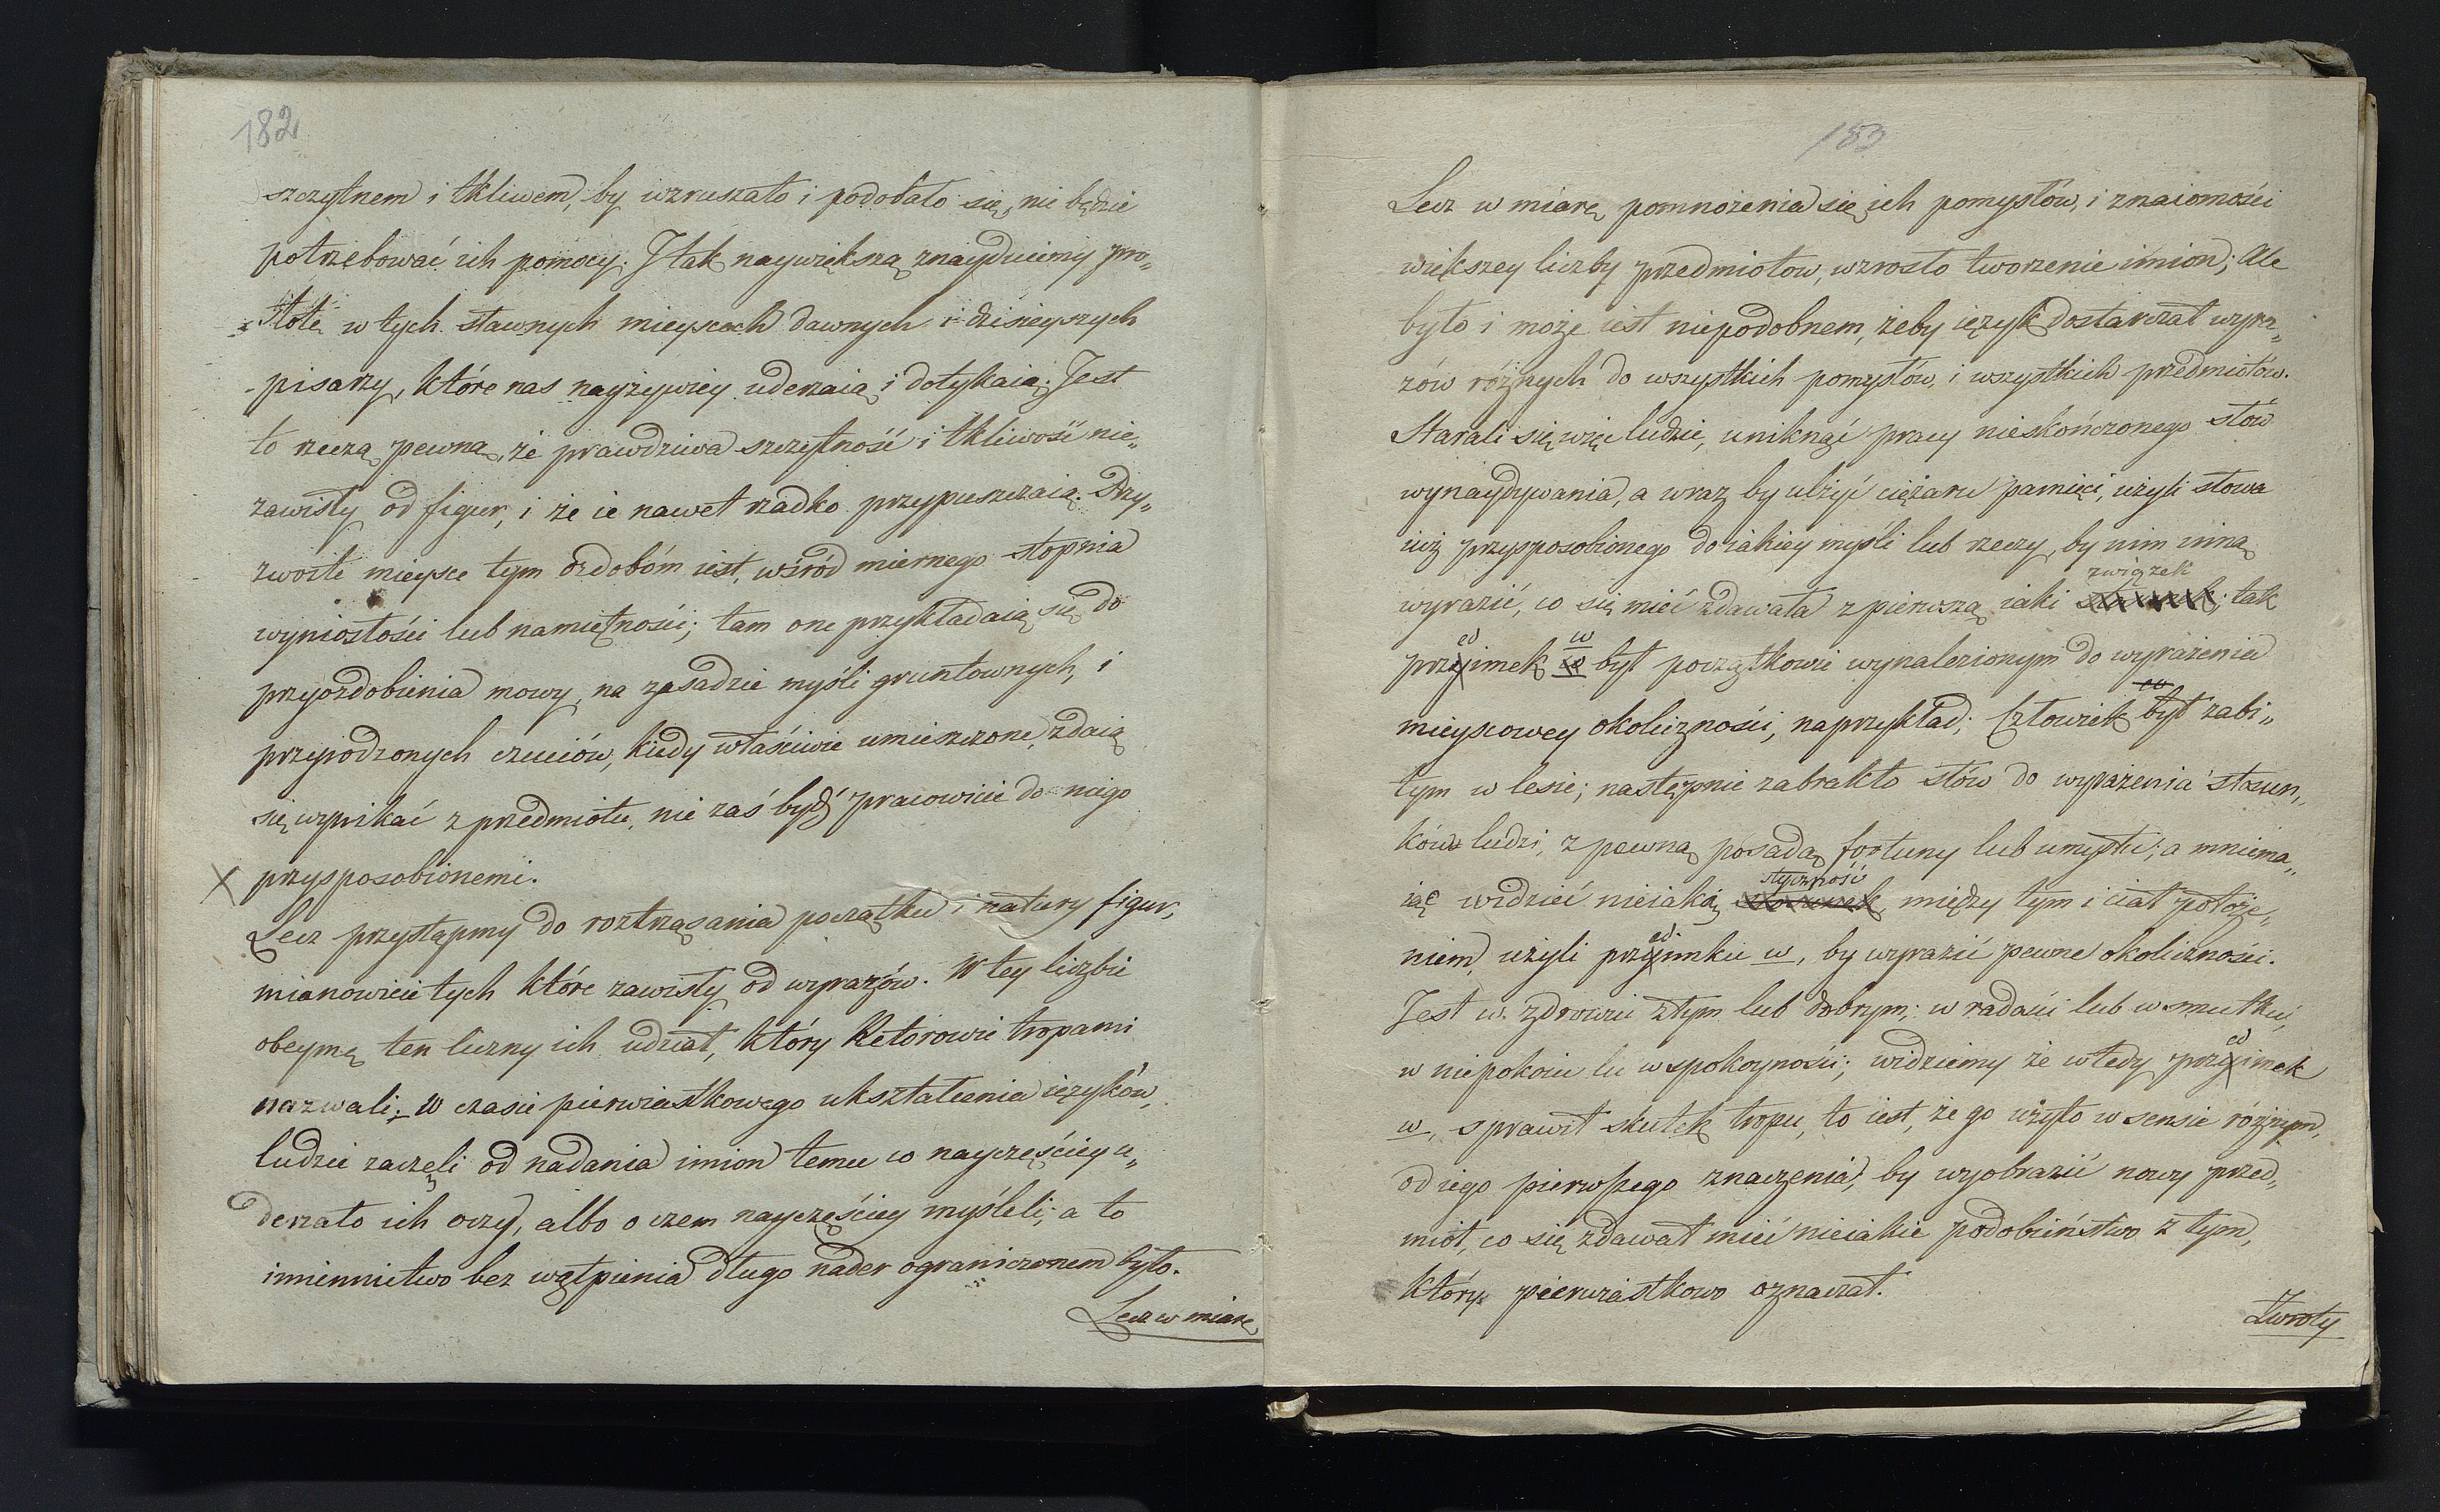 182
szczytnem i tkliwem, by wzruszało i podobało się, nie będzie
potrzebować ich pomocy. I tak naywiększą znayduiemy pro„
„stotę w tych sławnych mieyscach dawnych i dzisieyszych
pisarzy, które nas nayżywiey uderzaią i dotykaią. Jest
to rzeczą pewną, że prawdziwa szczytność i tkliwość nie„
zawisły od figur, i że ie nawet rzadko przypuszczaią. Przy„
zwoite mieysce tym ozdobóm iest, wśród miernego stopnia
wyniosłości lub namiętności; tam one przykładaią się do
przyozdobienia mowy, na zasadzie myśli gruntownych, i
przyrodzonych czuciów, kiedy właściwie umieszczone, zdaią
się wynikać z przedmiotu, nie zaś bydź pracowicie do niego
X przysposobionemi.
Lecz przystąpmy do roztrząsania początku i natury figur,
mianowicie tych które zawisły od wyrazów. W tey liczbie
obeymę ten liczny ich udział, który Retorowie tropami
nazwali. W czasie pierwiastkowego ukształcenia ięzyków,
ludzie zaczęli od nadania imion temu co nayczęściey u„
derzało ich oczy, albo o czem nayczęściey myśleli; a to
imiennictwo bez wątpienia długo nader ograniczonem było.
Lecz w miarę
183
Lecz w miarę pomnożenia się ich pomysłów, i znaiomości
większey liczby przedmiotow, wzrosło tworzenie imion; Ale
było i może iest niepodobnem, żeby ięzyk dostarczał wyra„
zów różnych do wszystkich pomysłów, i wszystkich przedmiotów.
Starali się więc ludzie, uniknąć pracy nieskończonego słów
wynaydywania, a wraz by ulżyć ciężaru pamięci, użyli słowa
iuż przysposobionego do iakiey myśli lub rzeczy, by nim inną
związek
wyrazić, co się mieć zdawała z pierwszą iaki stosunek; tak
ed w
przyimek w był początkowie wynalezionym do wyrażenia
co
mieyscowey okoliczności, naprzykład; Człowiek był zabi„
tym w lesie; następnie zabrakło słów do wyrażenia stosun„
ków ludzi, z pewną posadą fortuny lub umysłu; a mniema„
styczność
iąc widzieć nieiaką stosunek, między tym i ciał położe„
ed
niem, użyli przyimku w, by wyrazić pewne okoliczności.
Jest w zdrowiu złym lub dobrym; w radości lub w smutku,
ed
w niepokoiu lu w spokoyności; widziemy że wtedy przyimek
w, sprawił skutek tropu, to iest, że go użyto w sensie różnym,
od iego pierwszego znaczenia, by wyobrazić nowy przed„
miot, co się zdawał mieć nieiakie podobieństwo z tym,
który pierwiastkowo oznaczał.
Zwroty